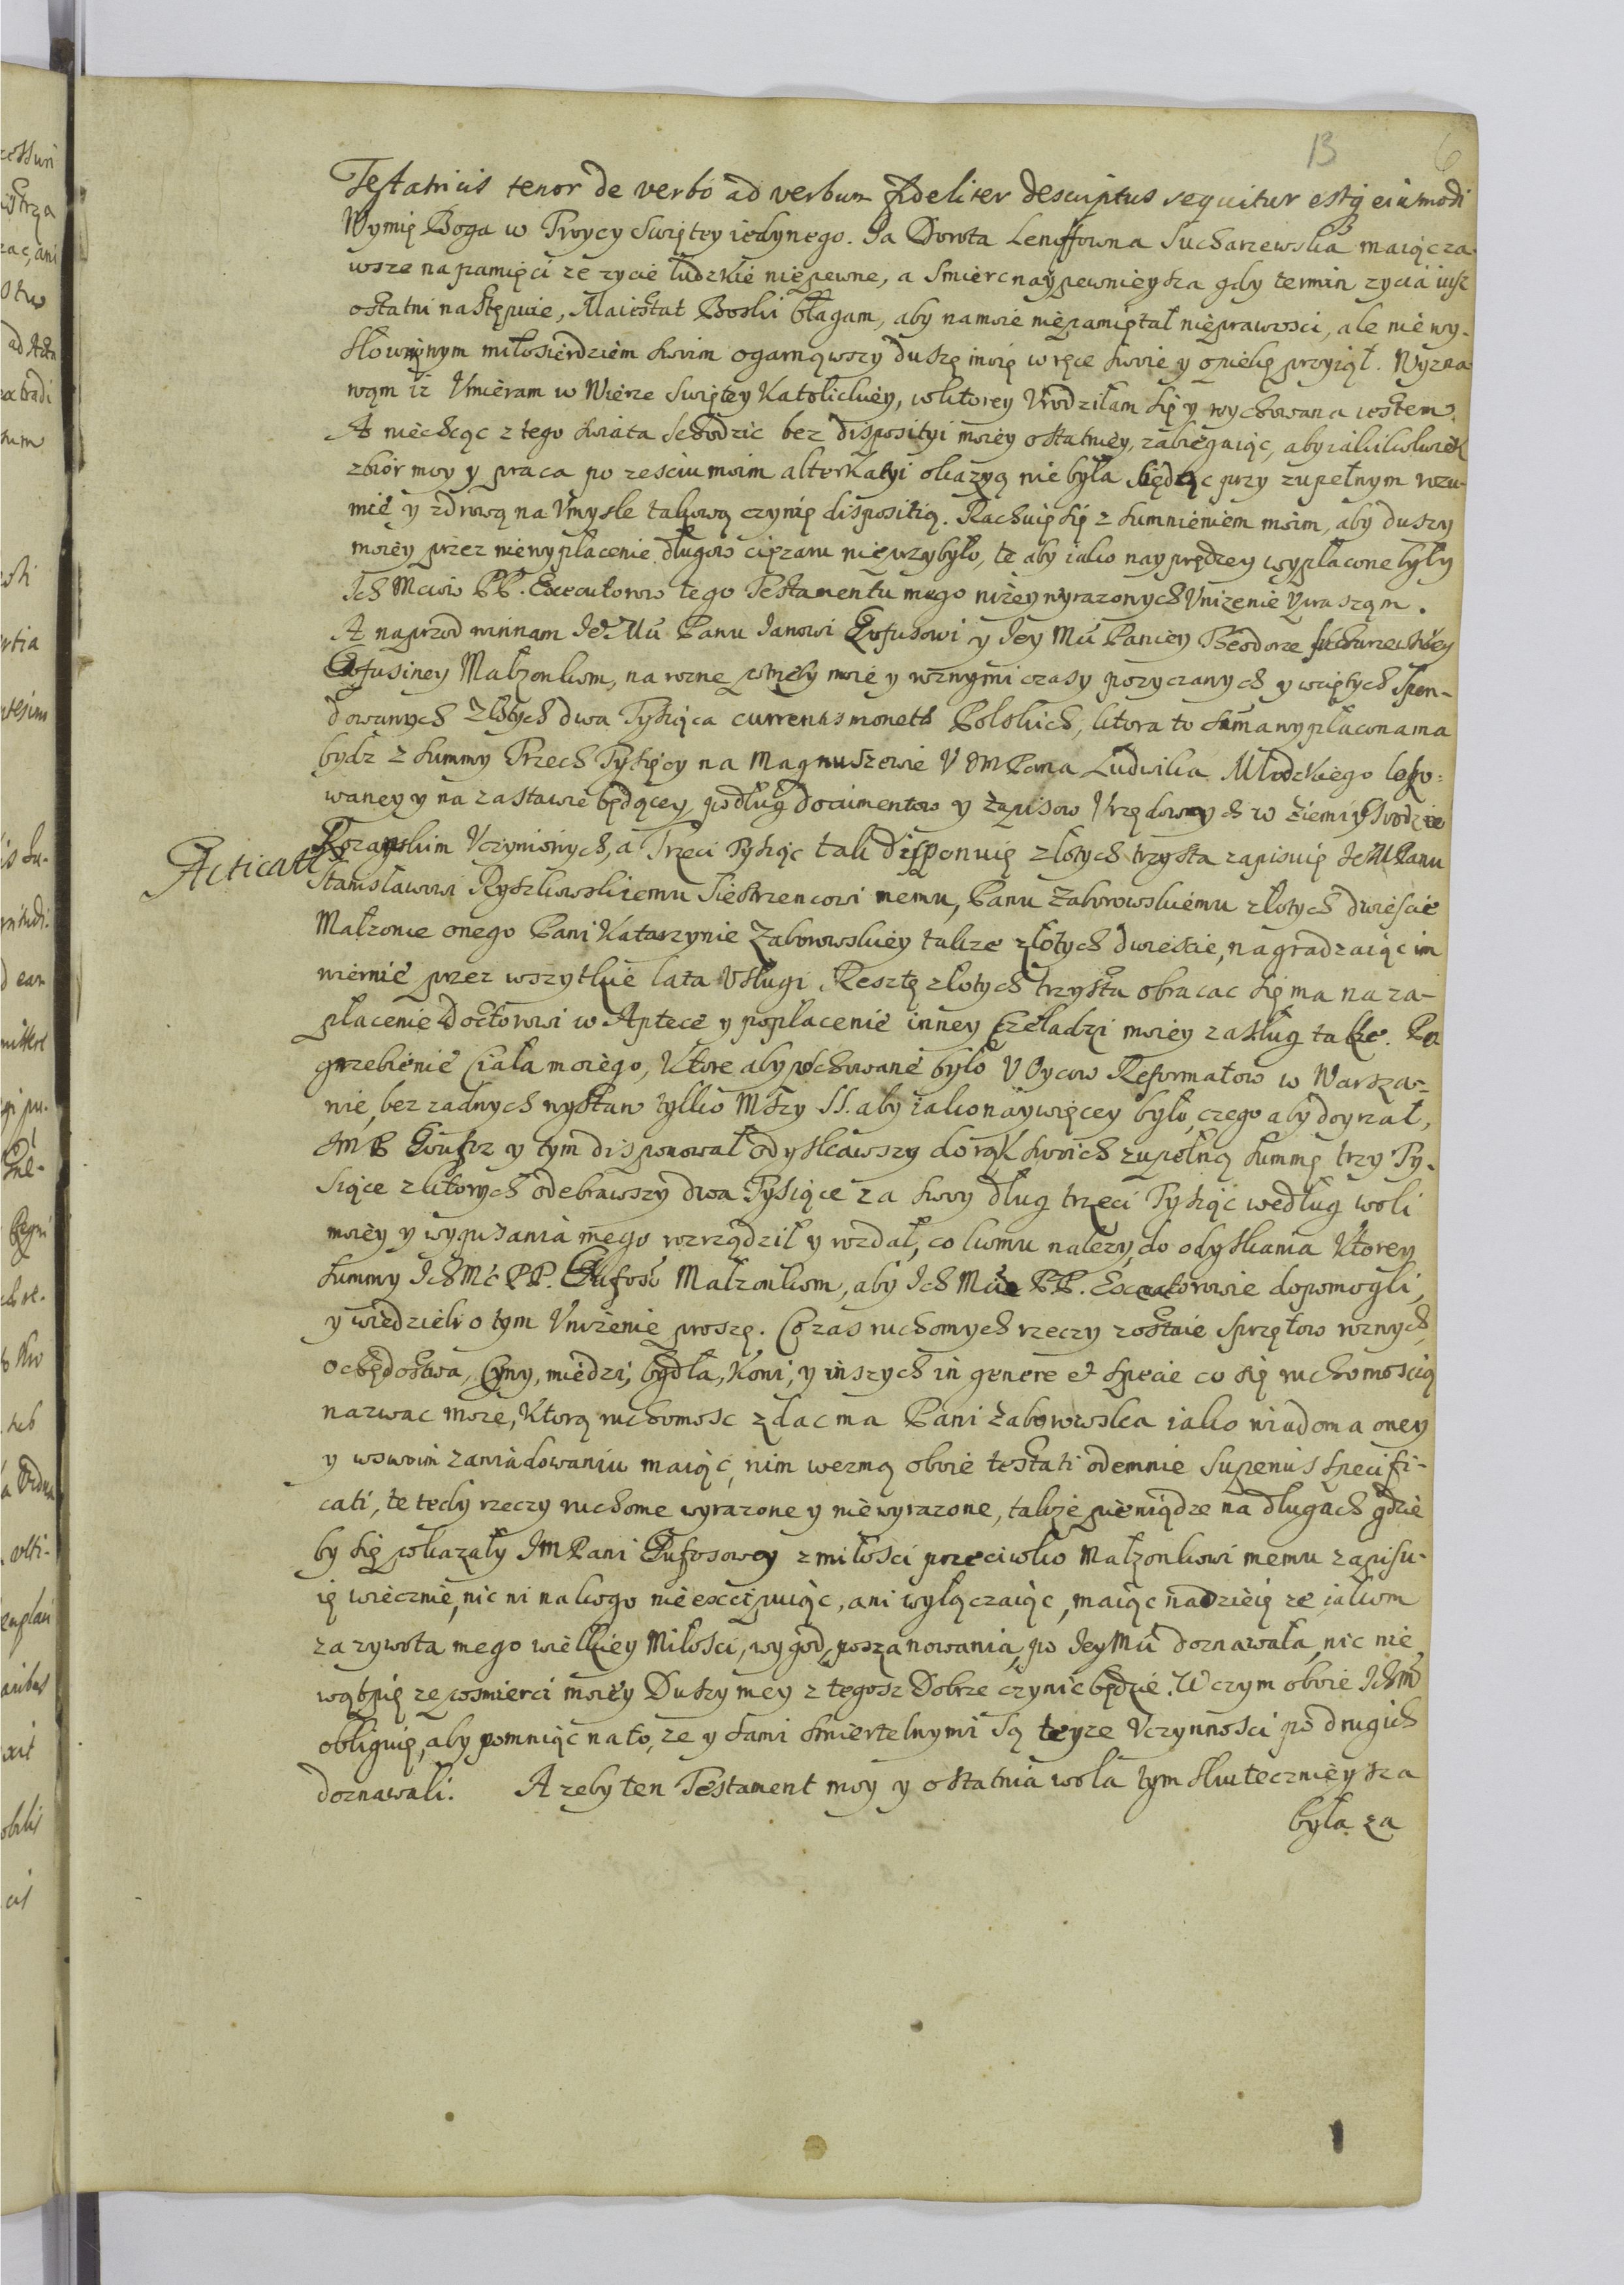 13 6
Testatricis tenor de verbo ad verbum fideliter descriptus sequitur estq eiusmodi
Wymię Boga w Troycy Swiętey iedynego. Ja Dorota Lenoffowna Sucharzewska maiąc za-
wsze na pamięci ze zycie ludzkie niepewne, a smierc naypewnieysza gdy termin zycia iusz
ostatni następuie, Maiestat Boski błagam, aby na moie niepamiętał nieprawosci, ale niewy-
słownym miłosierdziem swoim ogarnąwszy duszę moię w ręce swoie y opiekę przyiął. Wyzna-
wam iz Umieram w Wierze Swiętey Katolickiey, wktorey Urodziłam się y wychowana iestem.
A niechcąc z tego swiata schodzic bez disposityi moiey ostatniey, zabiegaiąc, aby iakikolwiek
zbior moy y praca po ześciu moim alterkatyi okazyą nie była będąc przy zupełnym rozu-
mie y zdrową na Umysle takową czynię dispositią. Rachuię się z sumnieniem moim, aby duszy
moiey przez niewypłacenie długow cięzaru nieprzybyło, te aby iako nayprędzey wypłacone były
Ich Mciow PP. Executorow tego Testamentu mego nizey wyrazonych Unizenie Upraszam.
A naprzod winnam Je Mu Panu Janowi Eufusowi y Jey Mu Paniey Teodorze Sucharzewskiey
Eufusiney Małzonkom, na rozne potrzeby moie y roznymi czasy pozyczanych y wziętych Spen-
dowanych Złotych dwa Tysiąca currentis monetæ Polskich, ktora to summa wypłacona ma
bydz z summy Trzech Tysięcy na Magnuszewie U JM Pana Ludwika Młodzkiego loko-
waney y na zastawie będącey podług documentow y zapisow Urzędownych w Ziemi y Grodzie
Acticatt
Rozanskim Uczynionych, a Trzeci Tysiąc tak disponuię złotych trzysta zapisuię Je M Panu
Stanisławowi Ryszkowskiemu Siestrzencowi memu, Panu Zaborowskiemu złotych dwiescie
Małzonce onego Pani Katarzynie Zaborowskiey takze złotych dwieście, nagradzaiąc im
wiernie przez wszytkie lata Usługi Resztę złotych trzysta obracac się ma na za-
płacenie Doctorowi w Aptece y popłacenie inney Czeladzi moiey zasług takze. Po
grzebienie Ciała moiego, Ktore aby pochowane było U Oycow Reformatow w Warsza-
wie, bez zadnych wystaw tylko Mszy SS. aby iako naywięcey było, czego aby doyrzał,
JM P Eufus y tym disponował odyskawszy do rąk swoich zupełną summę trzy Ty-
siące z ktorych odebrawszy dwa Tysiące za swoy dług trzeci Tysiąc według woli
moiey y wypisania mego rozrządził y rozdał, co komu nalezy, do odyskania Ktorey
summy Ich Mć PP. Eufusow Małzonkom, aby Ich Mć PP. Executorowie dopomogli,
y wiedzieli o tym Unizenie proszę. Co zas ruchomych rzeczy zostaie sprzętow roznych
ochędostwa, Cyny, miedzi, bydła, Koni, y inszych in genere et specie co się ruchomoscią
nazwac moze, Ktorą ruchomosc zdac ma Pani Zaborowska iako wiadoma oney
y wswoim zawiadowaniu maiąc, nim wezmą oboie testati odemnie superius specifi-
cati, te tedy rzeczy ruchome wyrazone y niewyrazone, takze pieniądze na długach gdzie
by się pokazały JM Pani Eufusowey z miłosci przeciwko Małzonkowi memu zapisu-
ię wiecznie, nic ni nakogo nie excipuiąc, ani wyłączaiąc, maiąc nadzieię ze iakom
za zywota mego wielkiey Miłosci, wygod, poszanowania, po Jey Mu doznawała, nic nie
wątpię ze posmierci moiey Duszy mey z tegosz Dobrze czynic będzie. W czym oboie Ich M
obliguię, aby pomniąc na to, ze y sami smiertelnymi są teyze Uczynnosci po drugich
doznawali. A zeby ten Testament moy y ostatnia wola tym skutecznieysza
była za